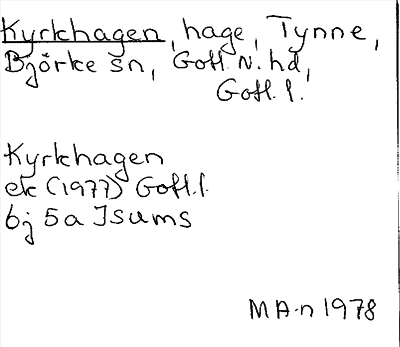 Kyrkhagen, hage, Tynne,
Björke sn, Gotl. N. hd,
Gotl. l.
Kyrkhagen
ek (1977) Gotl. l.
bj 5a Isums
MA-n 1978